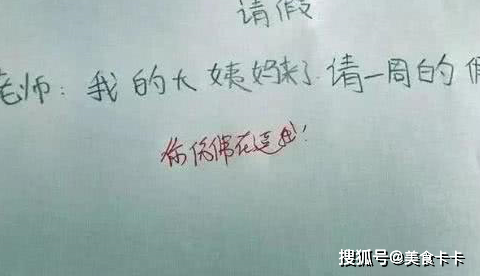 请假
老师：我的大姨妈来了.请一周的假
你侄佛在逗我！
搜狐号@美食卡卡